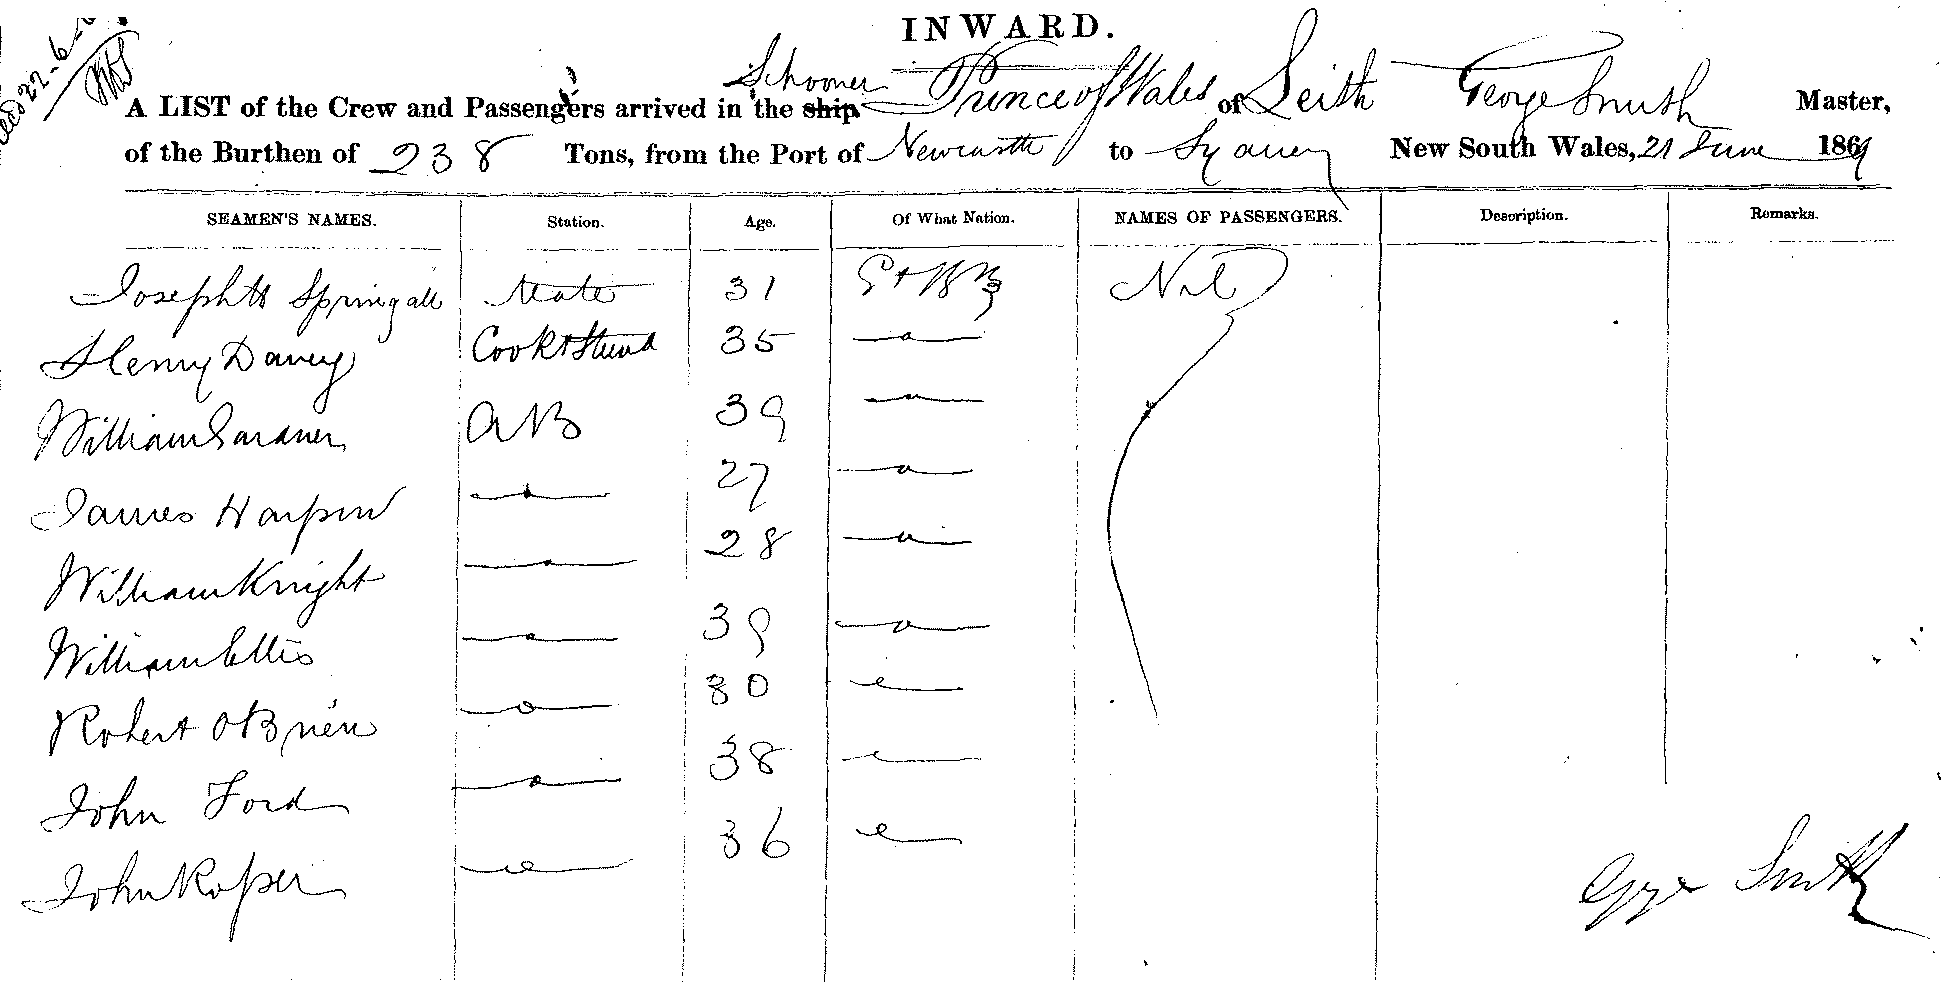 INWARD.
Recd 22-6-
A LIST of the Crew and Passengers arrived in the ship Schooner Prince of Wales of Leith George Smith Master,
of the Burthen of 238 Tons, from the Port of Newcastle to Sydney New South Wales, 21 June 1869
SEAMEN'S NAMES. Station. Age. Of What Nation. NAMES OF PASSENGERS. Description. Remarks.
Joseph H Springall Mate 31 Gt Br Nil
Henry Davey Cook & Stewd 35
William Gardner AB 39
James Harpur 27
William Knight 28
William Ellis 39
Robert O'Brien 30
John Ford 38
John Roper 36
George Smith